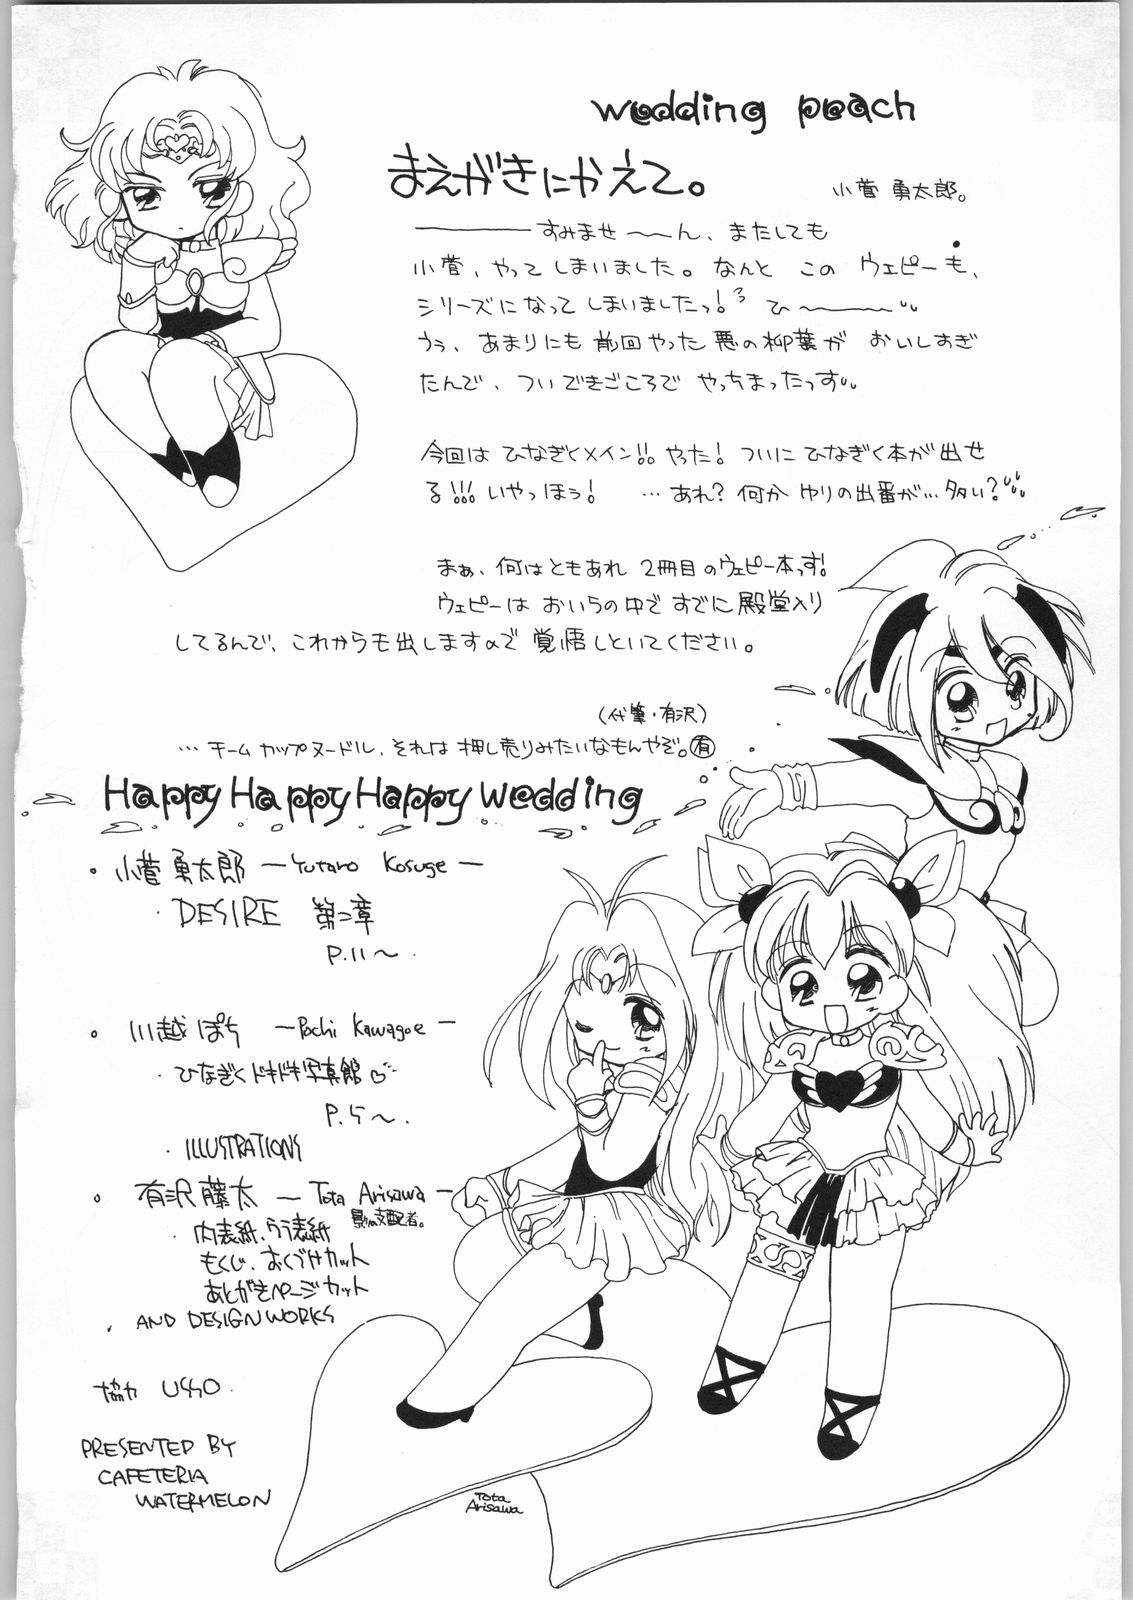 wedding peach
まえがきにかえて。
小菅 勇太郎。
――――すみませ〜〜ん、またしても
小菅、やってしまいました。なんと この ウェピーも、
シリーズになってしまいましたっ! ひ〜〜〜
うぅ、あまりにも前回やった悪の柳葉が おいしすぎ
たんで、ついできごころで やっちまったっす
今回は ひなぎくメイン!! やった! ついにひなぎく本が出せ
る!!! いやっほう! …あれ? 何か ゆりの出番が…多い?
まぁ、何はともあれ 2冊目のウェピー本っす!
ウェピーは おいらの中で すでに殿堂入り
してるんで、これからも出しますので 覚悟しといてください。
(代筆・有沢)
…チームカップヌードル、それは押し売りみたいなもんやぞ。有
Happy Happy Happy wedding
・小菅 勇太郎 ―Yutaro Kosuge―
・DESIRE 第二章
P.11〜.
・川越 ぽち ―Pochi Kawagoe―
・ひなぎくドキドキ写真館
P.5〜.
・ILLUSTRATIONS
・有沢 藤太 ―Tota Arisawa―
影の支配者。
・内表紙、ウラ表紙
もくじ、おくづけカット
あとがきページカット
・AND DESIGN WORKS
協力
PRESENTED BY
CAFETERIA
WATERMELON
Tota
Arisawa